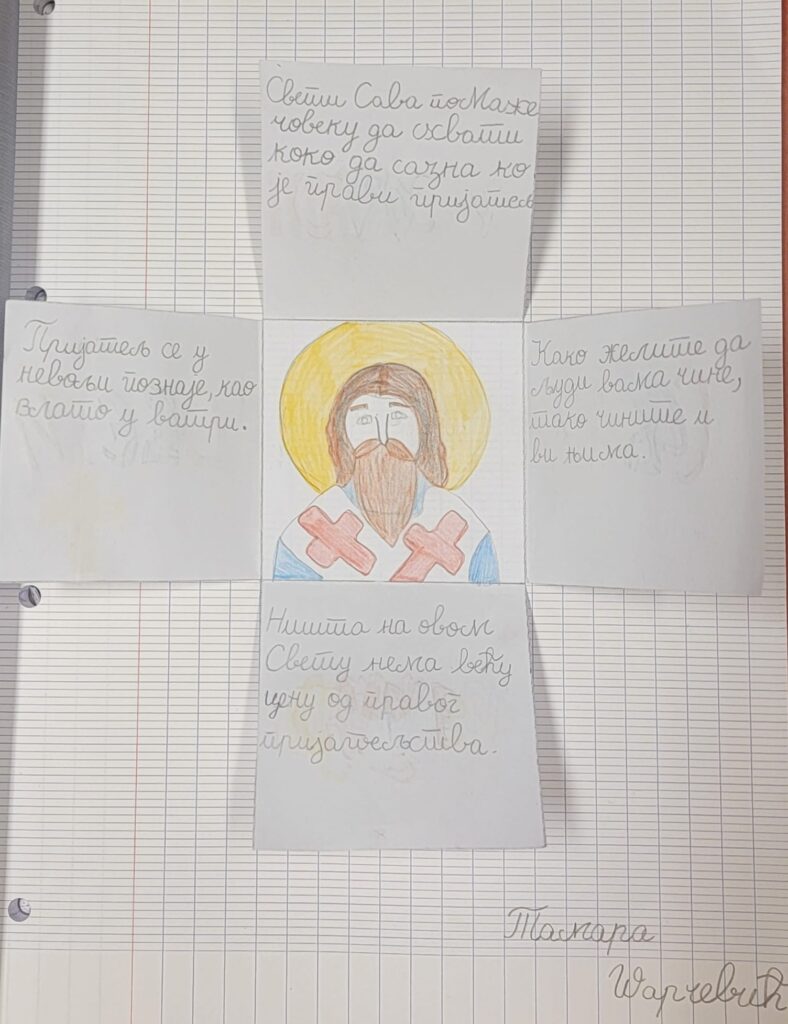 Свети Сава поМаже
човеку да схвати
коко да сазна ко
је прави пријатељ
Пријатељ се у
невољи познаје, као
злато у ватри.
Како желите да
људи вама чине,
тако чините и
ви њима.
Ништа на овом
Свету нема већу
цену од правог
пријатељства.
Тамара
Шарчевић